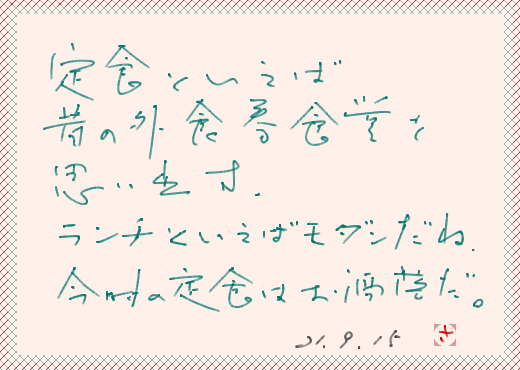 定食といえば
昔の外食券食堂を
思い出す.
ランチといえばモダンだね.
今時の定食はお洒落だ。
21.9.15 さ